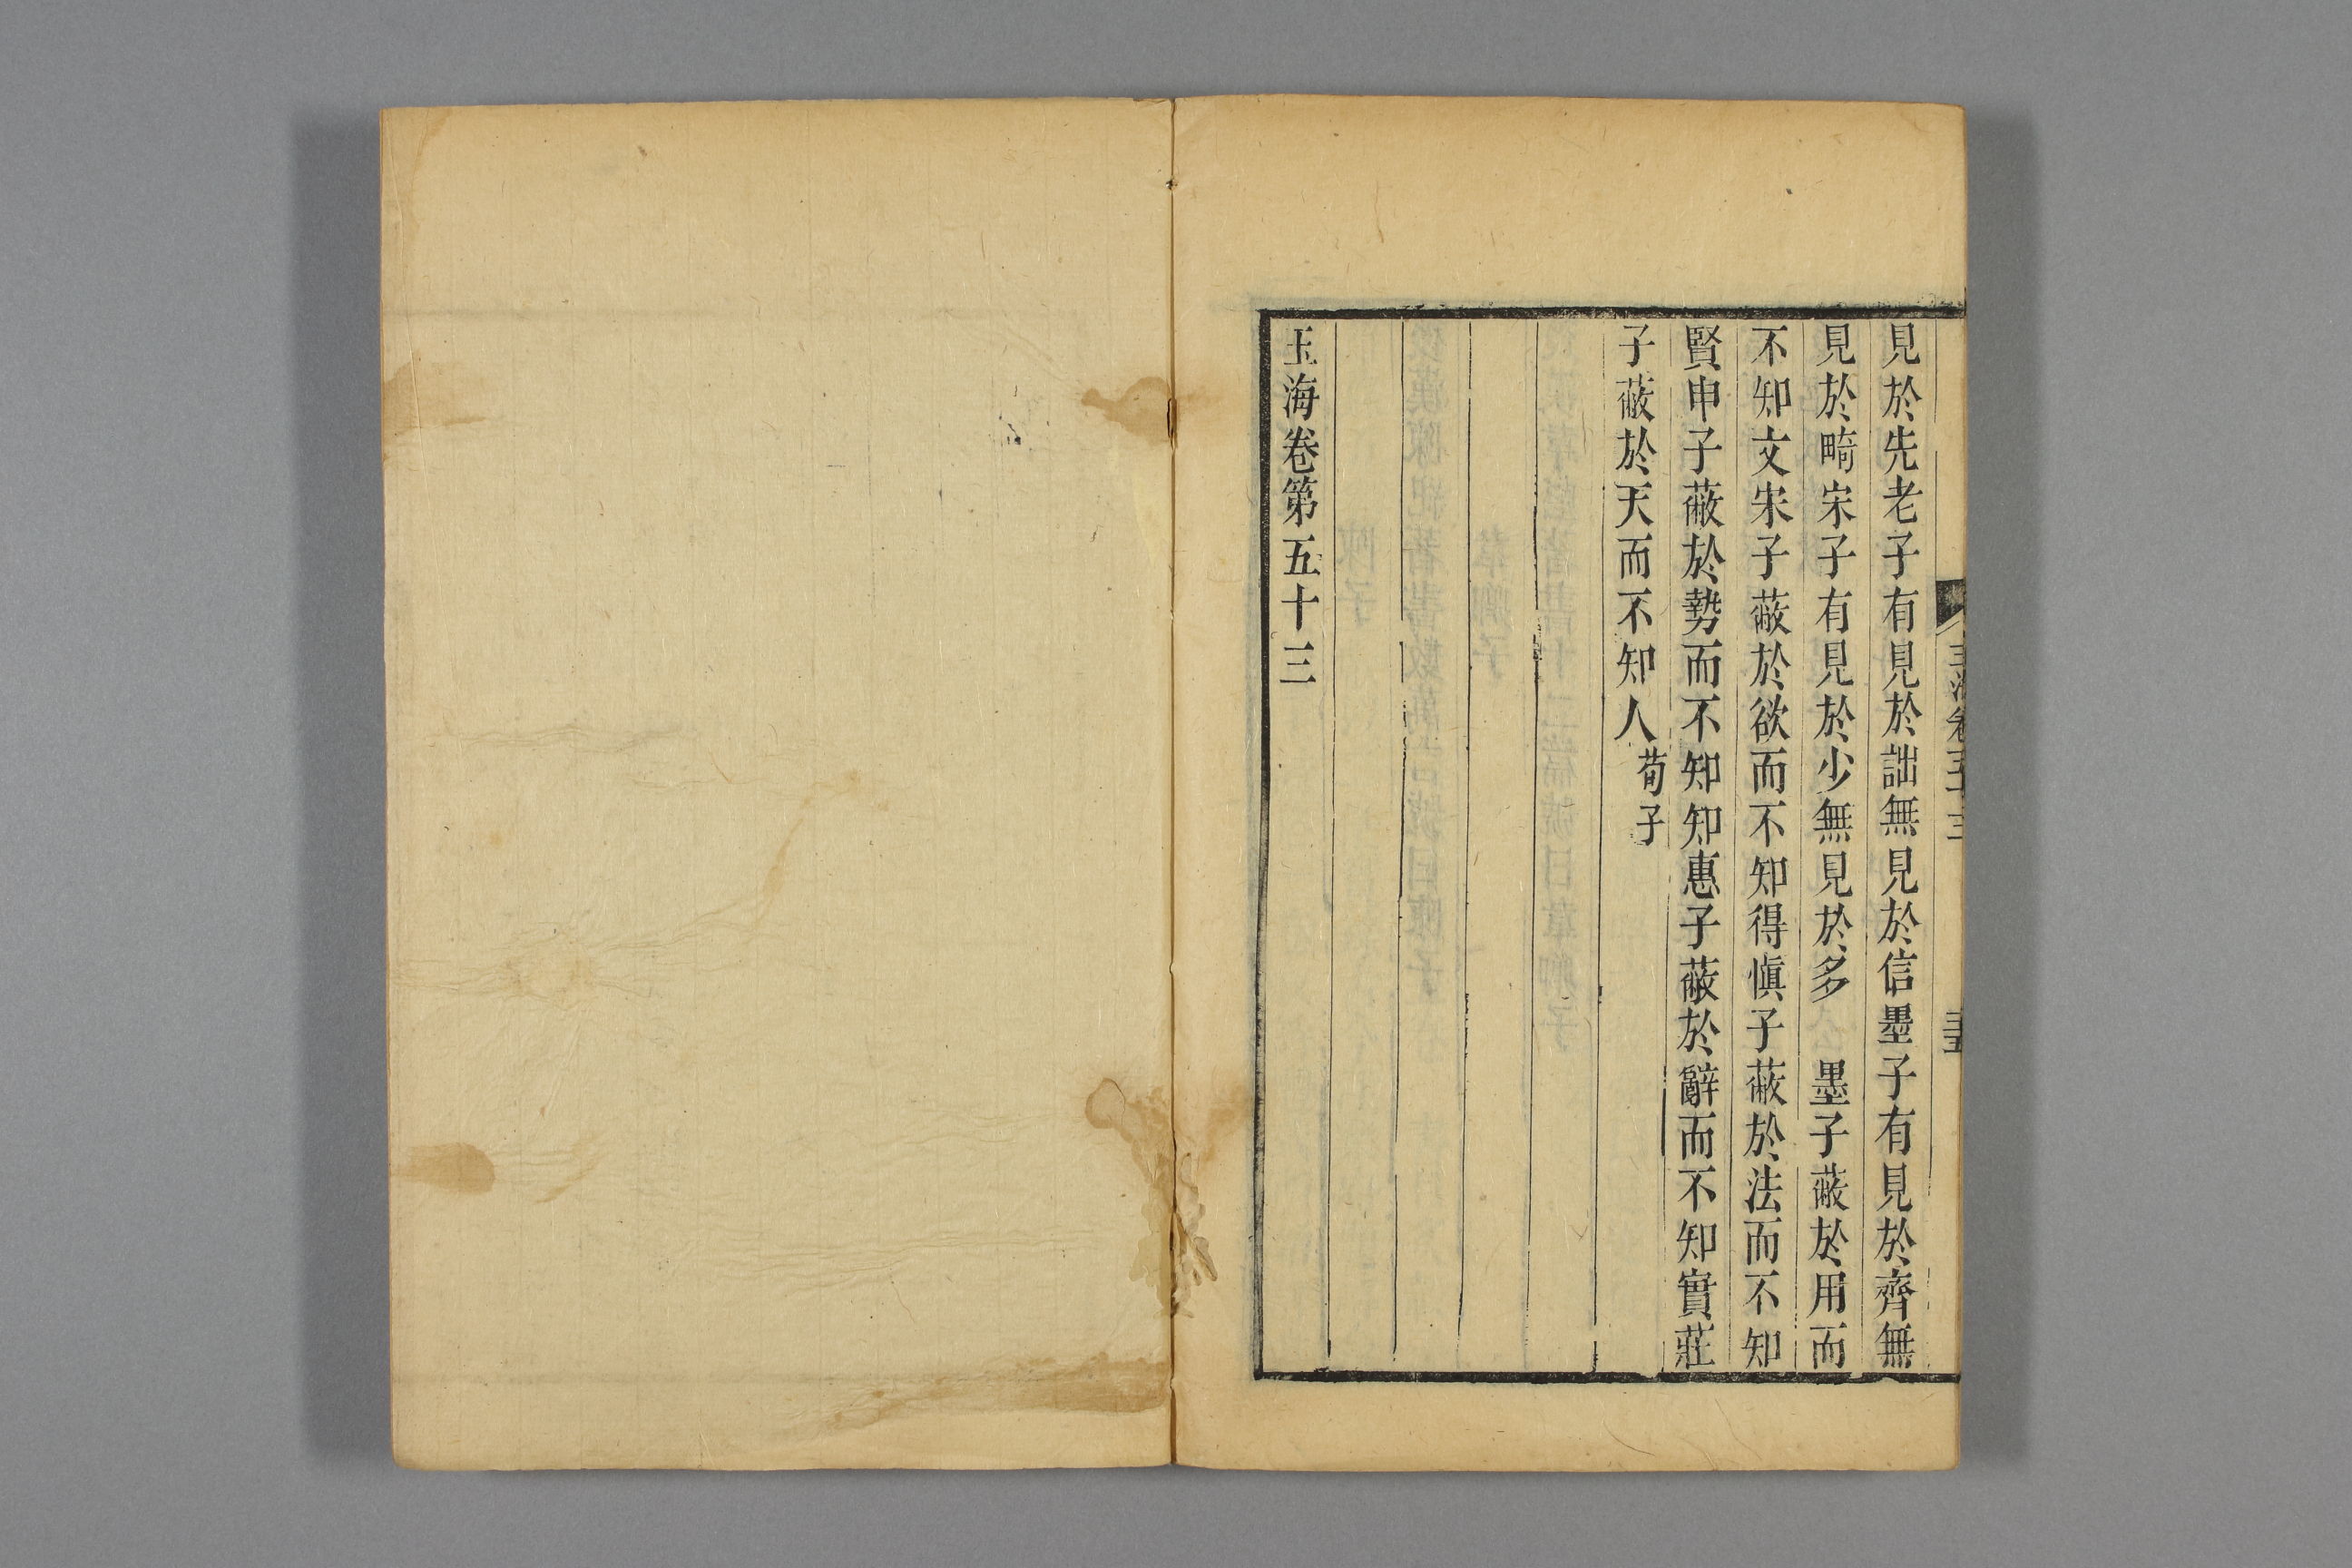 見於先老子有見於詘無見於信墨子有見於齊無
見於畸宋子有見於少無見於多　墨子蔽於用而
不知文宋子蔽於欲而不知得愼子蔽於法而不知
賢申子蔽於勢而不知知惠子蔽於辭而不知實莊
子蔽於天而不知人荀子
玉海卷第五十三
玉海卷五十三